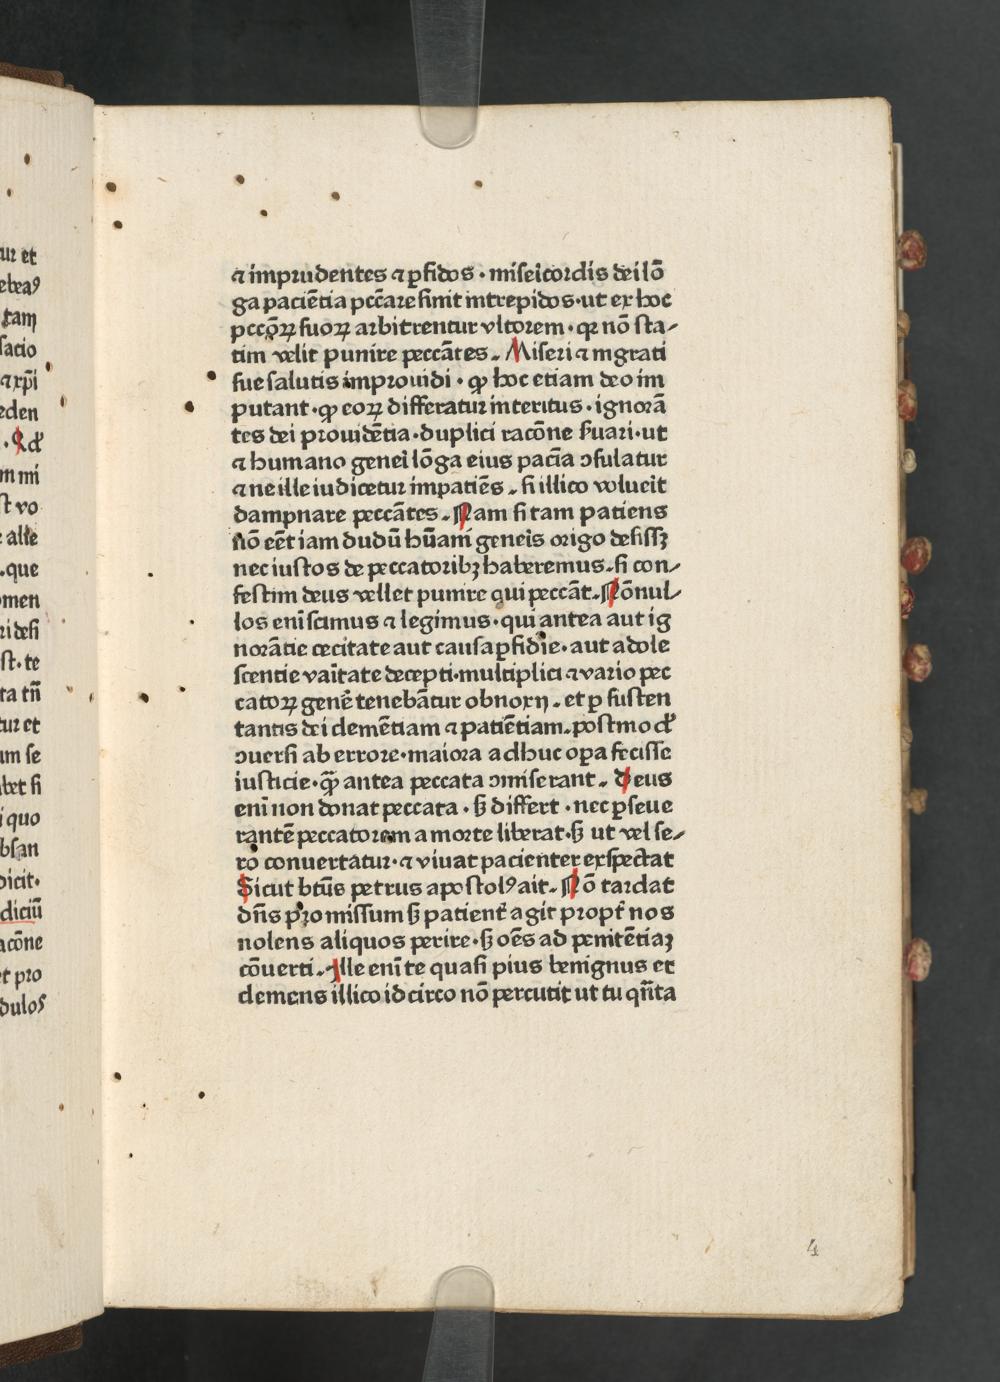 ur et
ebeaꝰ
tam
facio
⁊ xp̄i
eden
. Qd᷒
m mi
ſt vo
e alie
.que
omen
ri deſi
ſt. te
ta tn̄
tur et
um ſe
bet ſi
i quo
bſan
dicit.
diciū
acōne
et pro
dulos
⁊ imprudentes ⁊ ꝑfidos · miſeicordis dei lō
ga paciētia pccāre ſinit intrepidos · ut ex hoc
pccōꝝ ſuoꝝ arbitrentur vltorem · qꝛ nō ſta⸗
tim velit punire peccātes . Miſeri ⁊ mgrati
ſue ſalutis improuidi · ꝙ hoc etiam deo im
putant · ꝙ eoꝝ differatur interitus · ignorā
tes dei prouidētia · duplici racōne ẜuari · ut
⁊ humano genei lōga eius pacīa ↄſulatur
⁊ ne ille iudicetur impatiēs . ſi illico volueit
dampnare peccātes . Nam ſi tam patiens
nō eēt iam dudū hūam̄ geneis origo defiſſꝫ
nec iuſtos de peccatoribꝫ haberemus . ſi con⸗
feſtim deus vellet punire qui peccāt . Nōnul⸗
los eni ſcimus ⁊ legimus · qui antea aut ig
norātie cecitate aut cauſa ꝑfidie · aut adole
ſcentie vaītate decepti · multiplici ⁊ vario pec
catoꝝ genē tenebātur obnoxij . et ꝑ ſuſten
tantis dei clemētiam ⁊ patiētiam . poſtmod᷒
ↄuerſi ab errore · maiora adhuc oꝑa feciſſe
iuſticie · ꝙ̄ antea peccata ↄmiſerant . Deus
enī non donat peccata · ẜ differt · nec ꝑſeue
rantē peccatorem a morte liberat · ẜ ut vel ſe⸗
ro conuertatur · ⁊ viuat pacienter exſpectat
Sicut btūs petrus apoſtolꝰ ait . Nō tardat
dn̄s promiſſum ẜ patient̄ agit propt̄ nos
nolens aliquos perire · ẜ oēs ad penitētiaꝫ
cōuerti . Ille enī te quaſi pius benignus et
clemens illico idcirco nō percutit ut tu qn̄ta
4